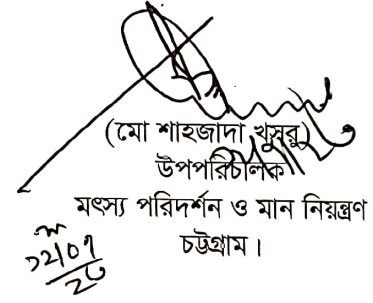 (মো শাহজাদা খুসরু)
উপপরিচালক
মৎস্য পরিদর্শন ও মান নিয়ন্ত্রণ
চট্টগ্রাম।